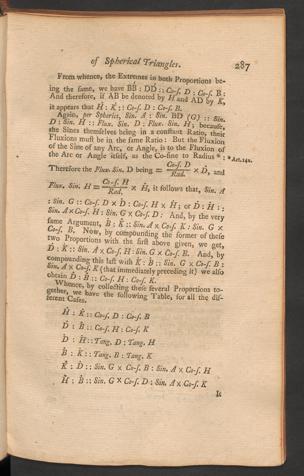 of Spherical Triangles. 287
From whence, the Extremes in both Proportions be-
ing the same, we have BḂ : DḊ :: Co-s. D : Co-s. B:
And therefore, if AB be denoted by H and AD by K,
it appears that Ḣ : K̇ :: Co-s. D : Co-s. B.
Again, per Spherics, Sin. A : Sin. BD (G) :: Sin.
D : Sin. H :: Flux. Sin. D : Flux. Sin. H; because,
the Sines themselves being in a constant Ratio, their
Fluxions must be in the same Ratio: But the Fluxion
of the Sine of any Arc, or Angle, is to the Fluxion of
the Arc or Angle itself, as the Co-sine to Radius *: * Art. 142.
Therefore the Flux. Sin. D being = Co-s. D / Rad. × Ḋ, and
Flux. Sin. H = Co-s. H / Rad. × Ḣ, it follows that, Sin. A
: Sin. G :: Co-s. D × Ḋ : Co-s. H × Ḣ; or Ḋ : Ḣ ::
Sin. A × Co-s. H : Sin. G × Co-s. D: And, by the very
same Argument, Ḃ : K̇ :: Sin. A × Co-s. K : Sin. G ×
Co-s. B. Now, by compounding the former of these
two Proportions with the first above given, we get,
Ḋ : K̇ :: Sin. A × Co-s. H : Sin. G × Co-s. B. And, by
compounding this last with K̇ : Ḃ :: Sin. G × Co-s. B :
Sin. A × Co-s. K (that immediately preceding it) we also
obtain Ḋ : Ḃ :: Co-s. H : Co-s. K.
Whence, by collecting these several Proportions to-
gether, we have the following Table, for all the dif-
ferent Cases.
Ḣ : K̇ :: Co-s. D : Co-s. B
Ḋ : Ḃ :: Co-s. H : Co-s. K
Ḋ : Ḣ :: Tang. D : Tang. H
Ḃ : K̇ :: Tang. B : Tang. K
K̇ : Ḋ :: Sin. G × Co-s. B : Sin. A × Co-s. H
Ḣ : Ḃ :: Sin. G × Co-s. D : Sin. A × Co-s. K
It